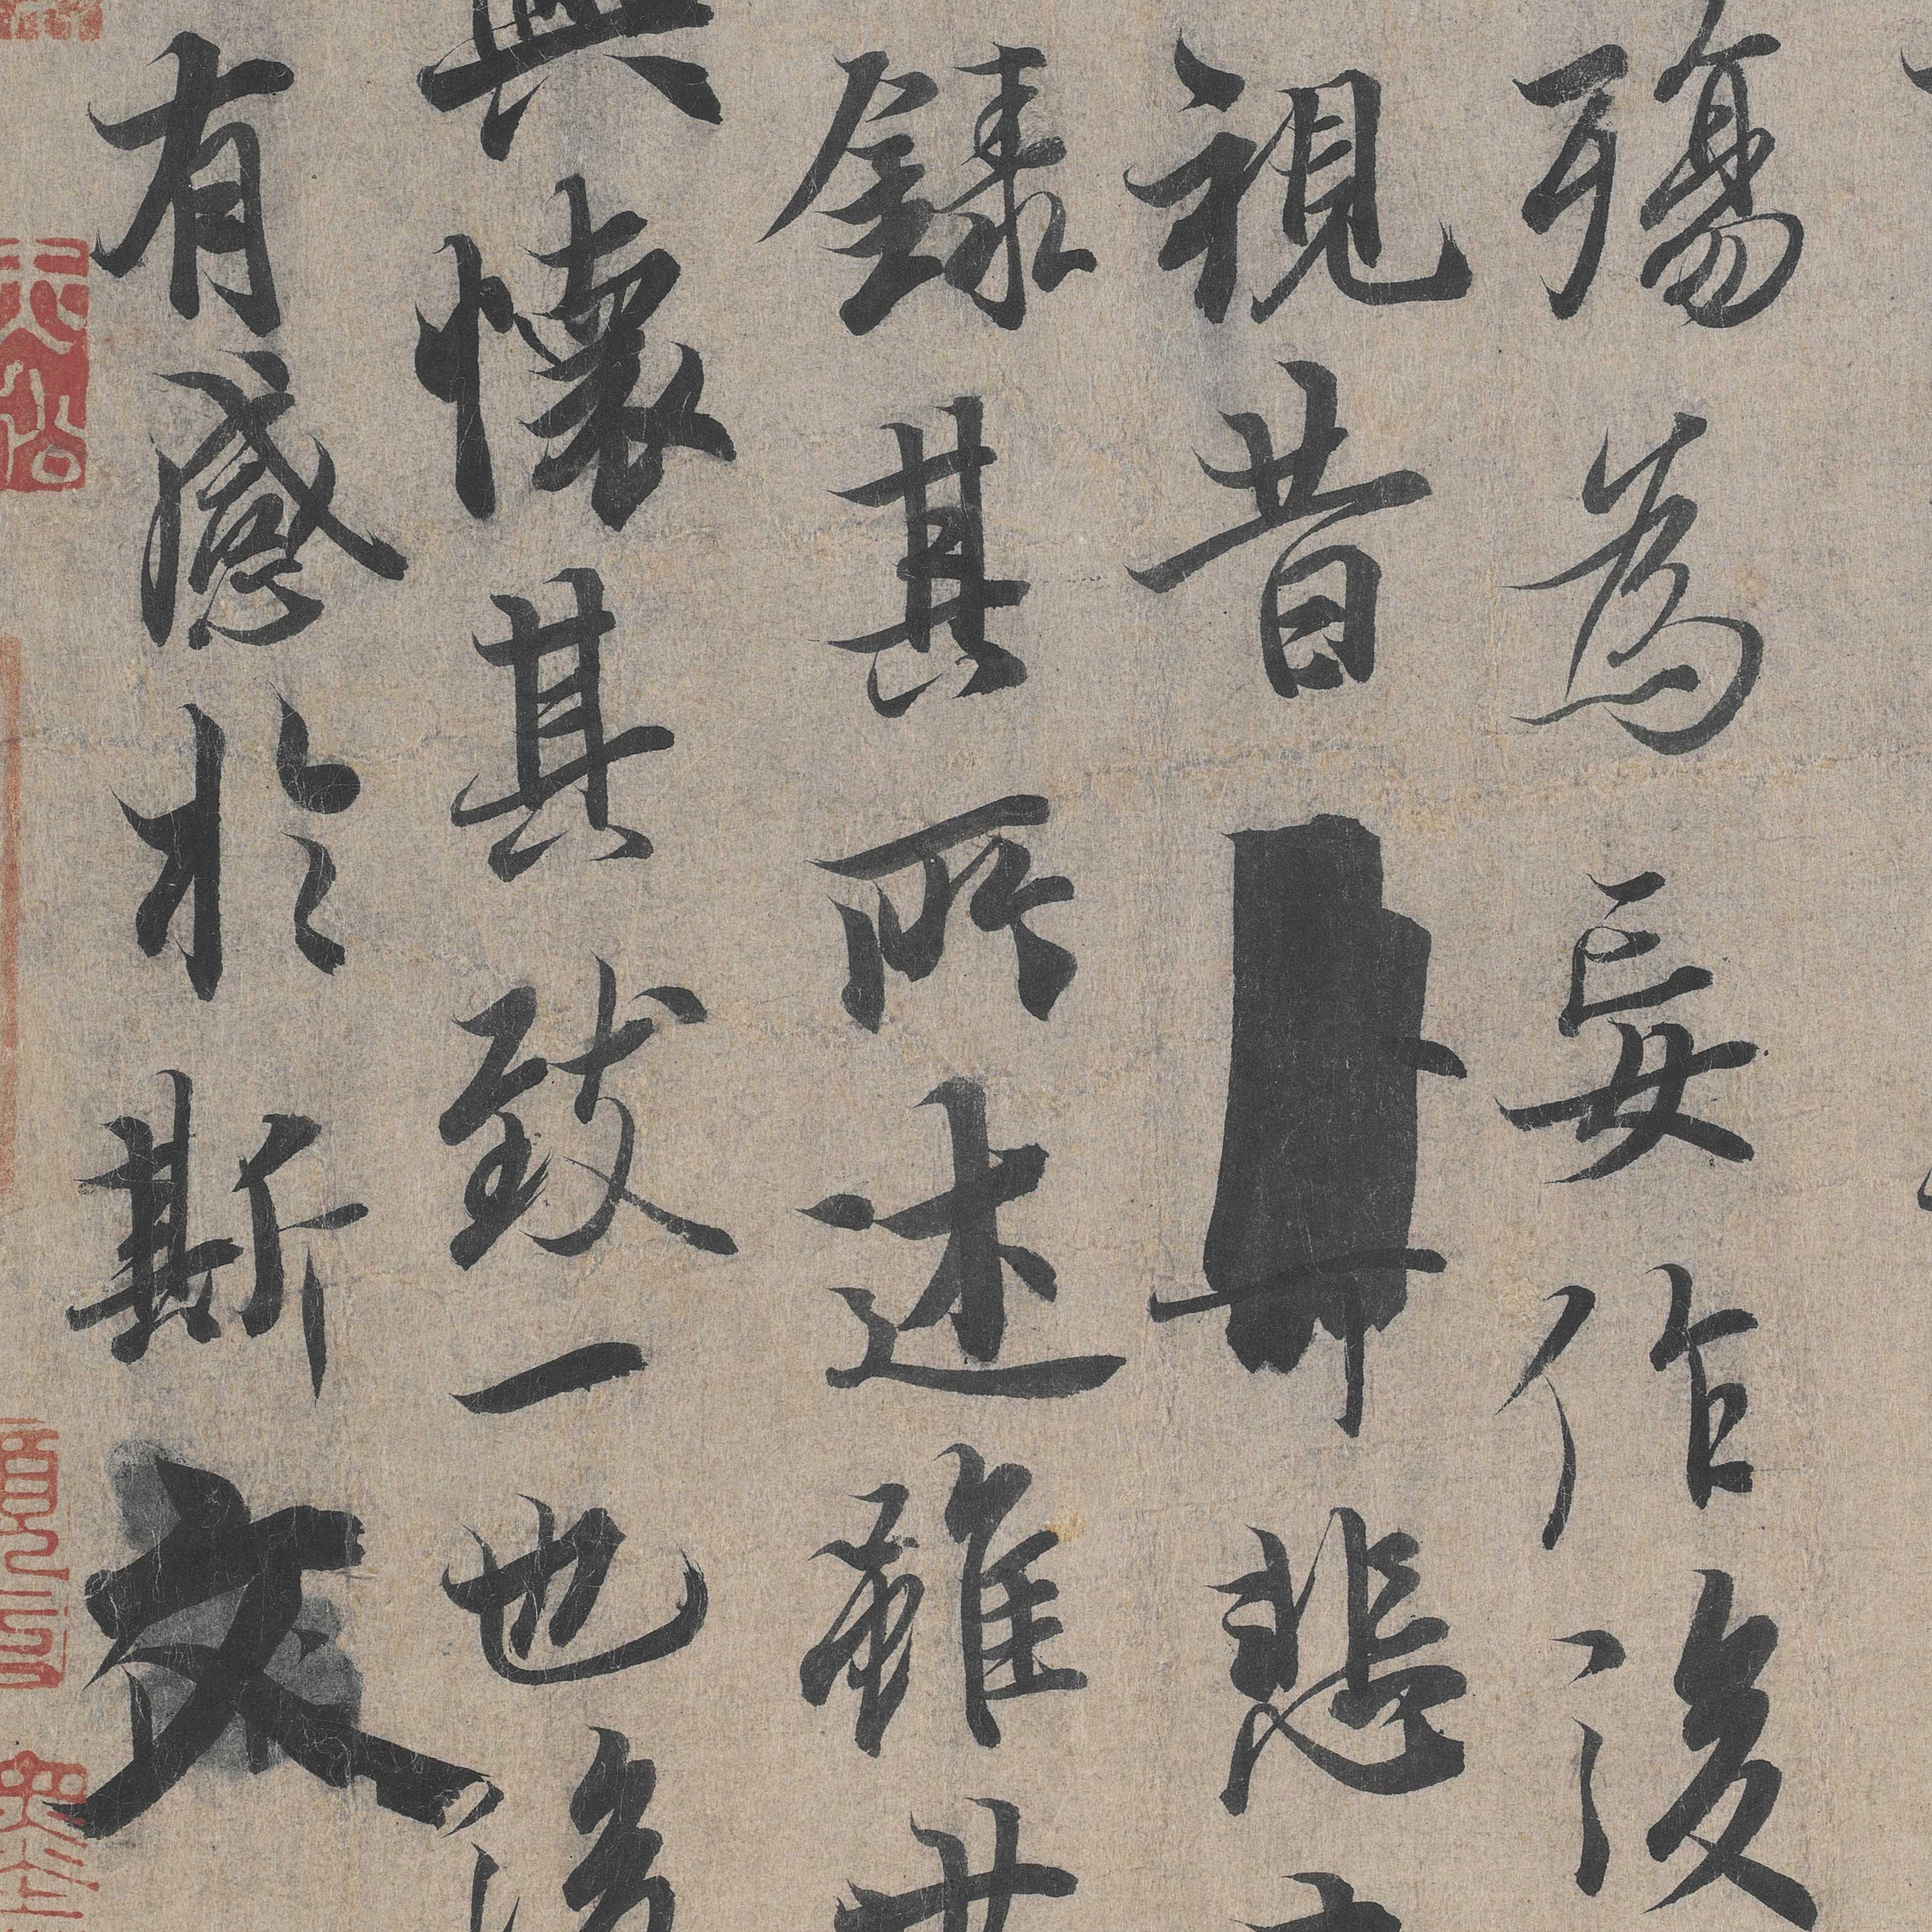 殤為妄作後
視昔悲
錄其所述雖世
興懷其致一也後
有感於斯文